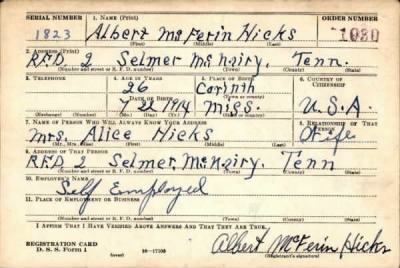 SERIAL NUMBER 1. NAME (Print) ORDER NUMBER
1823 Albert McFerin Hicks 1030
(First) (Middle) (Last)
2. ADDRESS (Print)
R.F.D. 2 Selmer McNairy, Tenn.
(Number and street or R. F. D. number) (Town) (County) (State)
3. TELEPHONE 4. AGE IN YEARS 5. PLACE OF BIRTH 6. COUNTRY OF CITIZENSHIP
26 Corinth
DATE OF BIRTH (Town or county)
7-2-1914 Miss. U.S.A.
(Exchange) (Number) (Mo.) (Day) (Yr.) (State or country)
7. NAME OF PERSON WHO WILL ALWAYS KNOW YOUR ADDRESS 8. RELATIONSHIP OF THAT PERSON
Mrs. Alice Hicks Wife
(Mr., Mrs., Miss) (First) (Middle) (Last)
9. ADDRESS OF THAT PERSON
R.F.D 2 Selmer McNairy. Tenn
(Number and street or R. F. D. number) (Town) (County) (State)
10. EMPLOYER'S NAME
Self Employed
11. PLACE OF EMPLOYMENT OR BUSINESS
(Number and street or R. F. D. number) (Town) (County) (State)
I AFFIRM THAT I HAVE VERIFIED ABOVE ANSWERS AND THAT THEY ARE TRUE.
REGISTRATION CARD
D. S. S. Form 1 (over) Albert McFerin Hicks
(Registrant's signature)